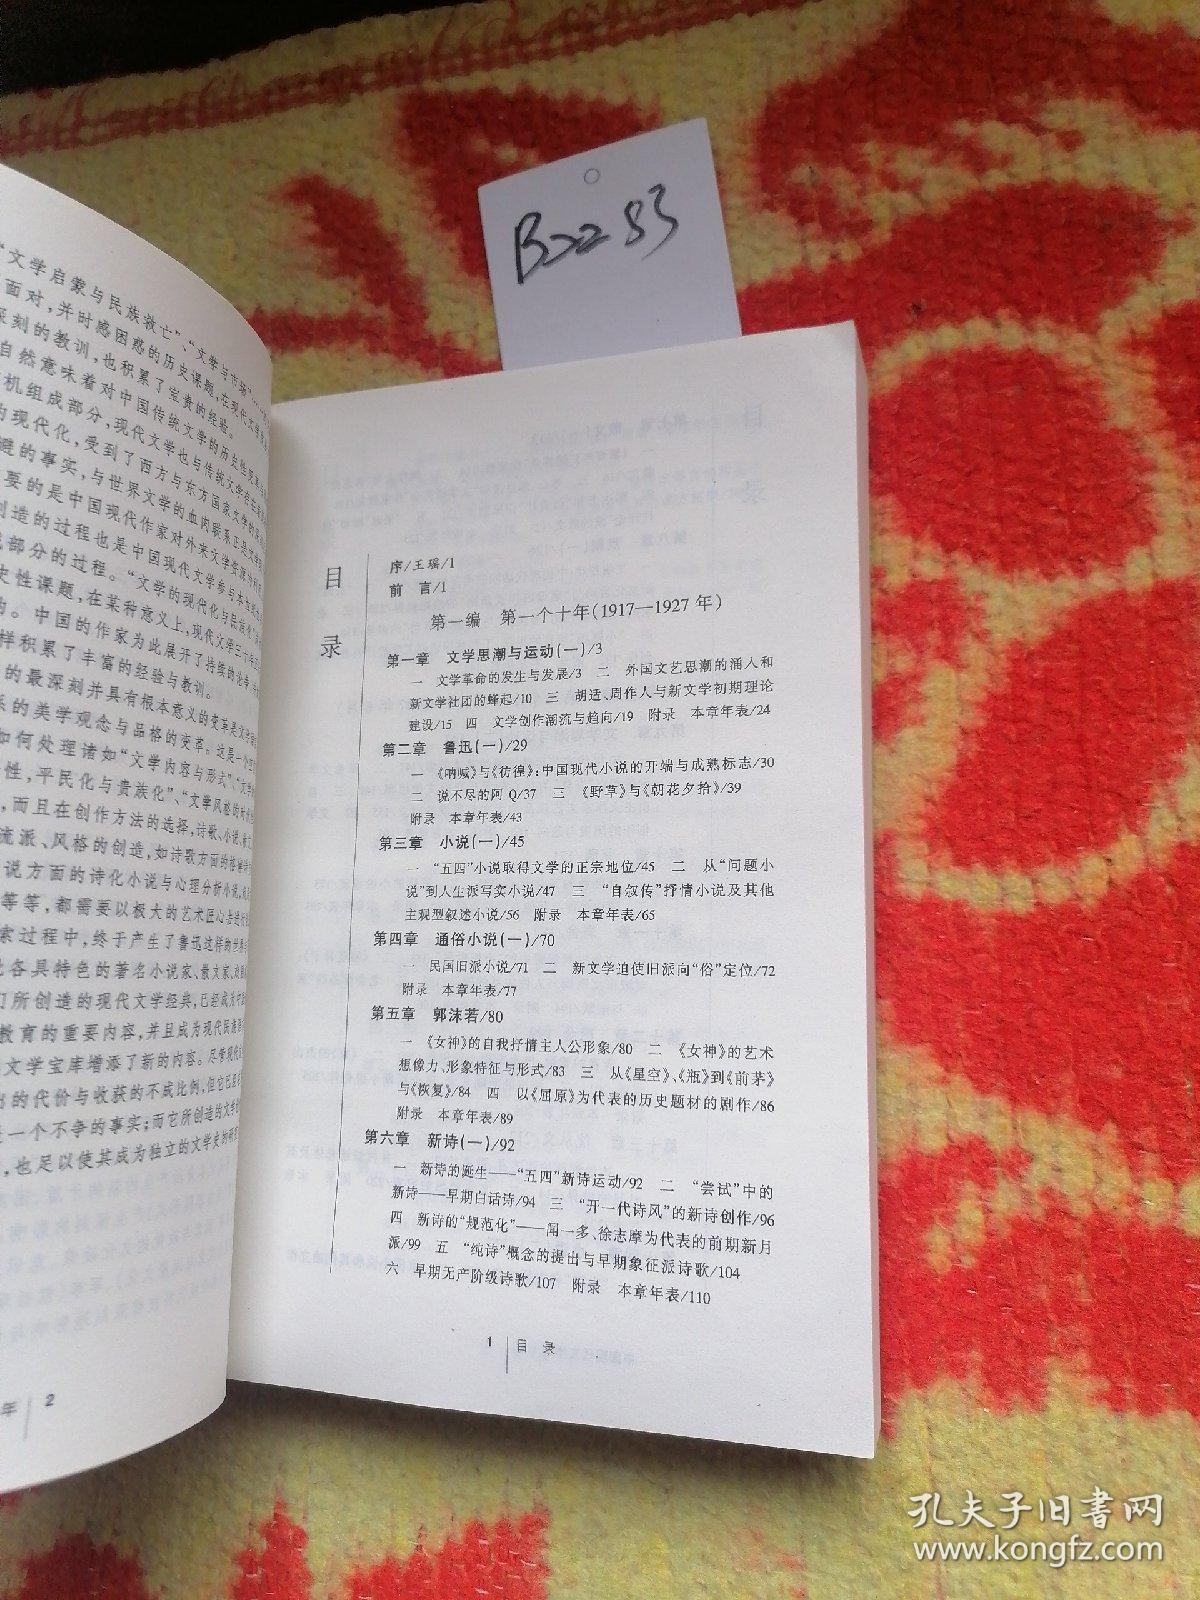 B2283
“文学启蒙与民族救亡”、“文学与市场”……
面对，并时感困惑的历史课题，在现代文学
深刻的教训，也积累了宝贵的经验。
自然意味着对中国传统文学的历史性
机组成部分，现代文学也与传统文学存在
的现代化，受到了西方与东方国家文学的
避的事实，与世界文学的血肉联系正是
要的是中国现代作家对外来文学资源
创造的过程也是中国现代文学参与
成部分的过程。“文学的现代化与民族化”
史性课题，在某种意义上，现代文学三十年
的。中国的作家为此展开了持续的论争，
样积累了丰富的经验与教训。
的最深刻并具有根本意义的变革是
系的美学观念与品格的变革。这是一个
如何处理诸如“文学内容与形式”、“文学
性，平民化与贵族化”、“文学风格的
，而且在创作方法的选择，诗歌、小说、
流派、风格的创造，如诗歌方面的格律
说方面的诗化小说与心理分析小说，
等等，都需要以极大的艺术匠心去进行
索过程中，终于产生了鲁迅这样的世界
比各具特色的著名小说家、散文家、
们所创造的现代文学经典，已经成为
教育的重要内容，并且成为现代民族
文学宝库增添了新的内容。尽管现代
出的代价与收获的不成比例，但它已
是一个不争的事实；而它所创造的文学
，也足以使其成为独立的文学史的研究
年 2
目录
序/王瑶/1
前 言/1
第一编 第一个十年(1917—1927年)
第一章 文学思潮与运动(一)/3
一 文学革命的发生与发展/3 二 外国文艺思潮的涌入和
新文学社团的蜂起/10 三 胡适、周作人与新文学初期理论
建设/15 四 文学创作潮流与趋向/19 附录 本章年表/24
第二章 鲁迅(一)/29
一 《呐喊》与《彷徨》:中国现代小说的开端与成熟标志/30
二 说不尽的阿Q/37 三 《野草》与《朝花夕拾》/39
附录 本章年表/43
第三章 小说(一)/45
一 “五四”小说取得文学的正宗地位/45 二 从“问题小
说”到人生派写实小说/47 三 “自叙传”抒情小说及其他
主观型叙述小说/56 附录 本章年表/65
第四章 通俗小说(一)/70
一 民国旧派小说/71 二 新文学迫使旧派向“俗”定位/72
附录 本章年表/77
第五章 郭沫若/80
一 《女神》的自我抒情主人公形象/80 二 《女神》的艺术
想像力、形象特征与形式/83 三 从《星空》、《瓶》到《前茅》
与《恢复》/84 四 以《屈原》为代表的历史题材的剧作/86
附录 本章年表/89
第六章 新诗(一)/92
一 新诗的诞生——“五四”新诗运动/92 二 “尝试”中的
新诗——早期白话诗/94 三 “开一代诗风”的新诗创作/96
四 新诗的“规范化”——闻一多、徐志摩为代表的前期新月
派/99 五 “纯诗”概念的提出与早期象征派诗歌/104
六 早期无产阶级诗歌/107 附录 本章年表/110
1 目 录
孔夫子旧书网
www.kongfz.com